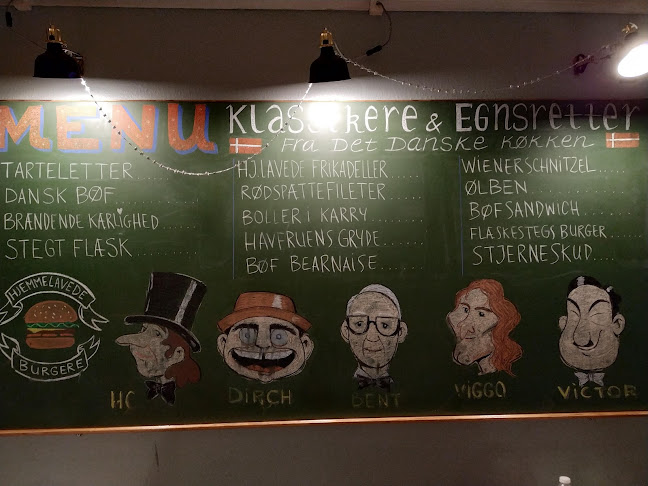 MENU
Klassikere & Egnsretter
Fra Det Danske køkken
TARTELETTER
DANSK BØF
BRÆNDENDE KÆRLIGHED
STEGT FLÆSK
HJ.LAVEDE FRIKADELLER
RØDSPÆTTEFILETER
BOLLER I KARRY
HAVFRUENS GRYDE
BØF BEARNAISE
WIENERSCHNITZEL
ØLBEN
BØFSANDWICH
FLÆSKESTEGS BURGER
STJERNESKUD
HJEMMELAVEDE
BURGERE
HC
DIRCH
BENT
VIGGO
VICTOR